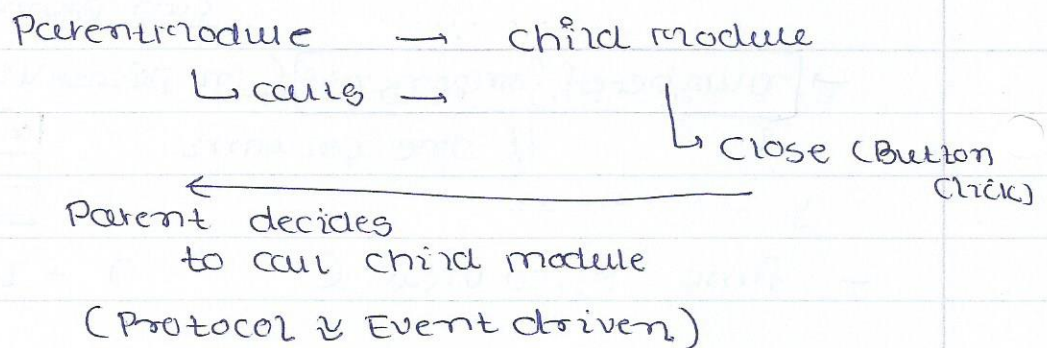 Parentmodule → child module
↳ calls →
↳ close (Button
click)
←
Parent decides
to call child module
(Protocol & Event driven)